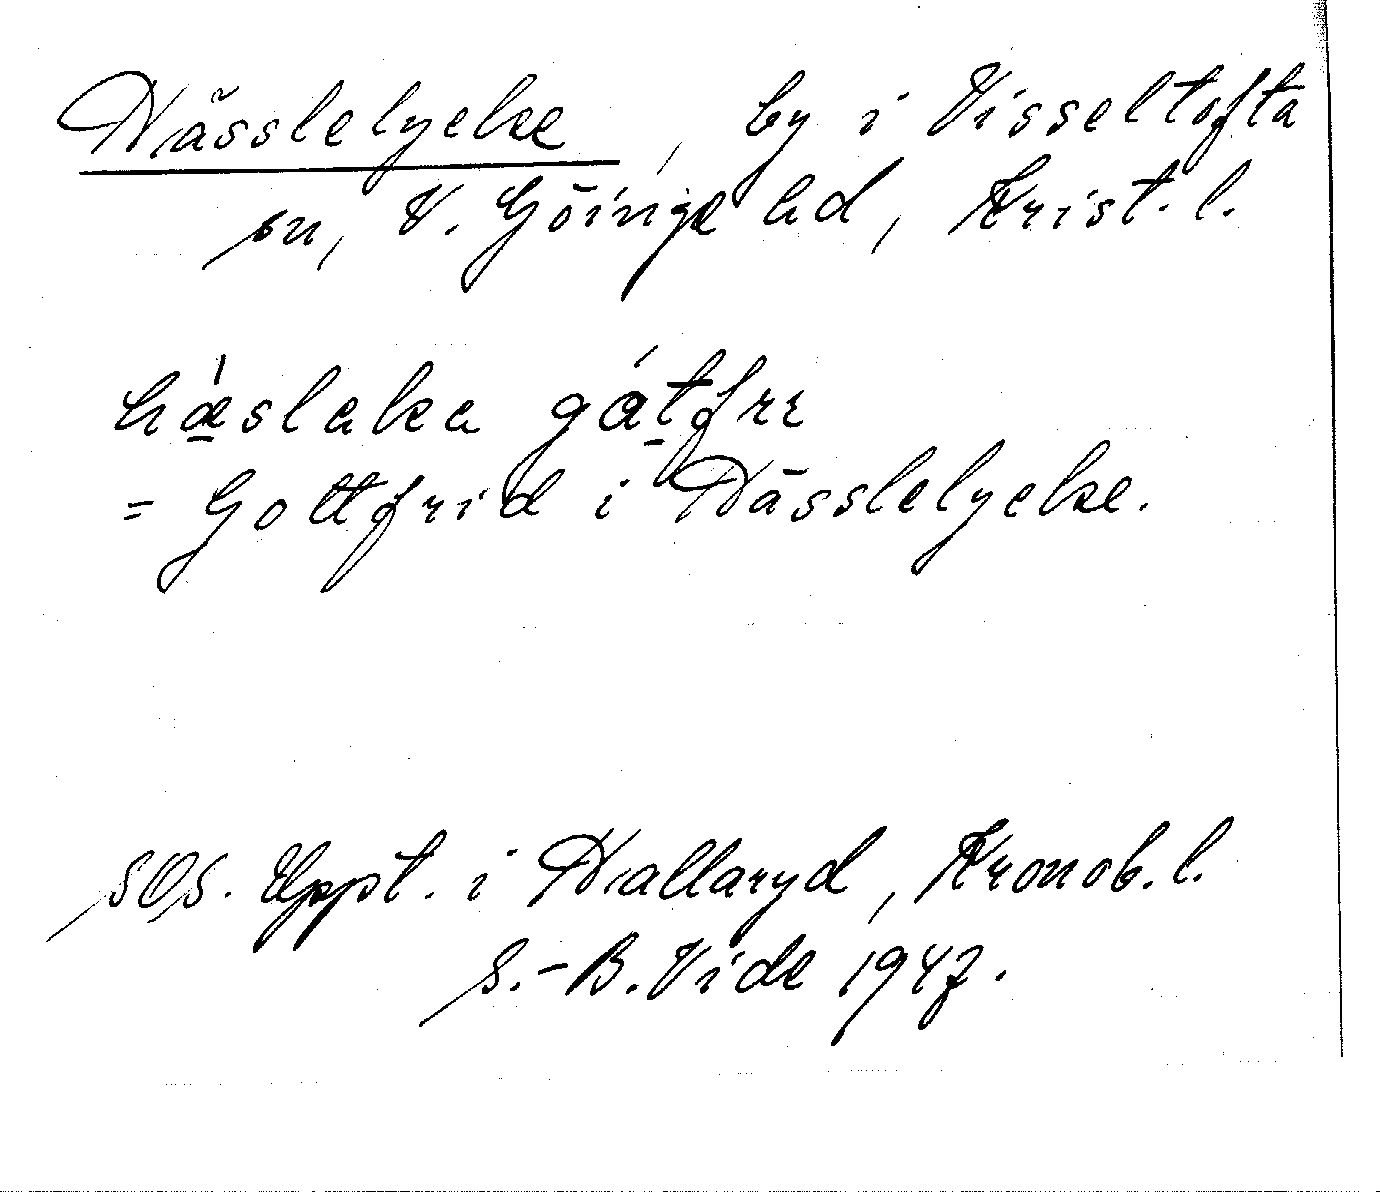 Hässlelycke, by i Visseltofta
sn, V. Göinge hd, Krist. l.
hǽslaka gátfrɪ
= Gottfrid i Hässlelycke.
SOS. Uppt. i Hallaryd, Kronob. l.
S.-B. Vide 1947.